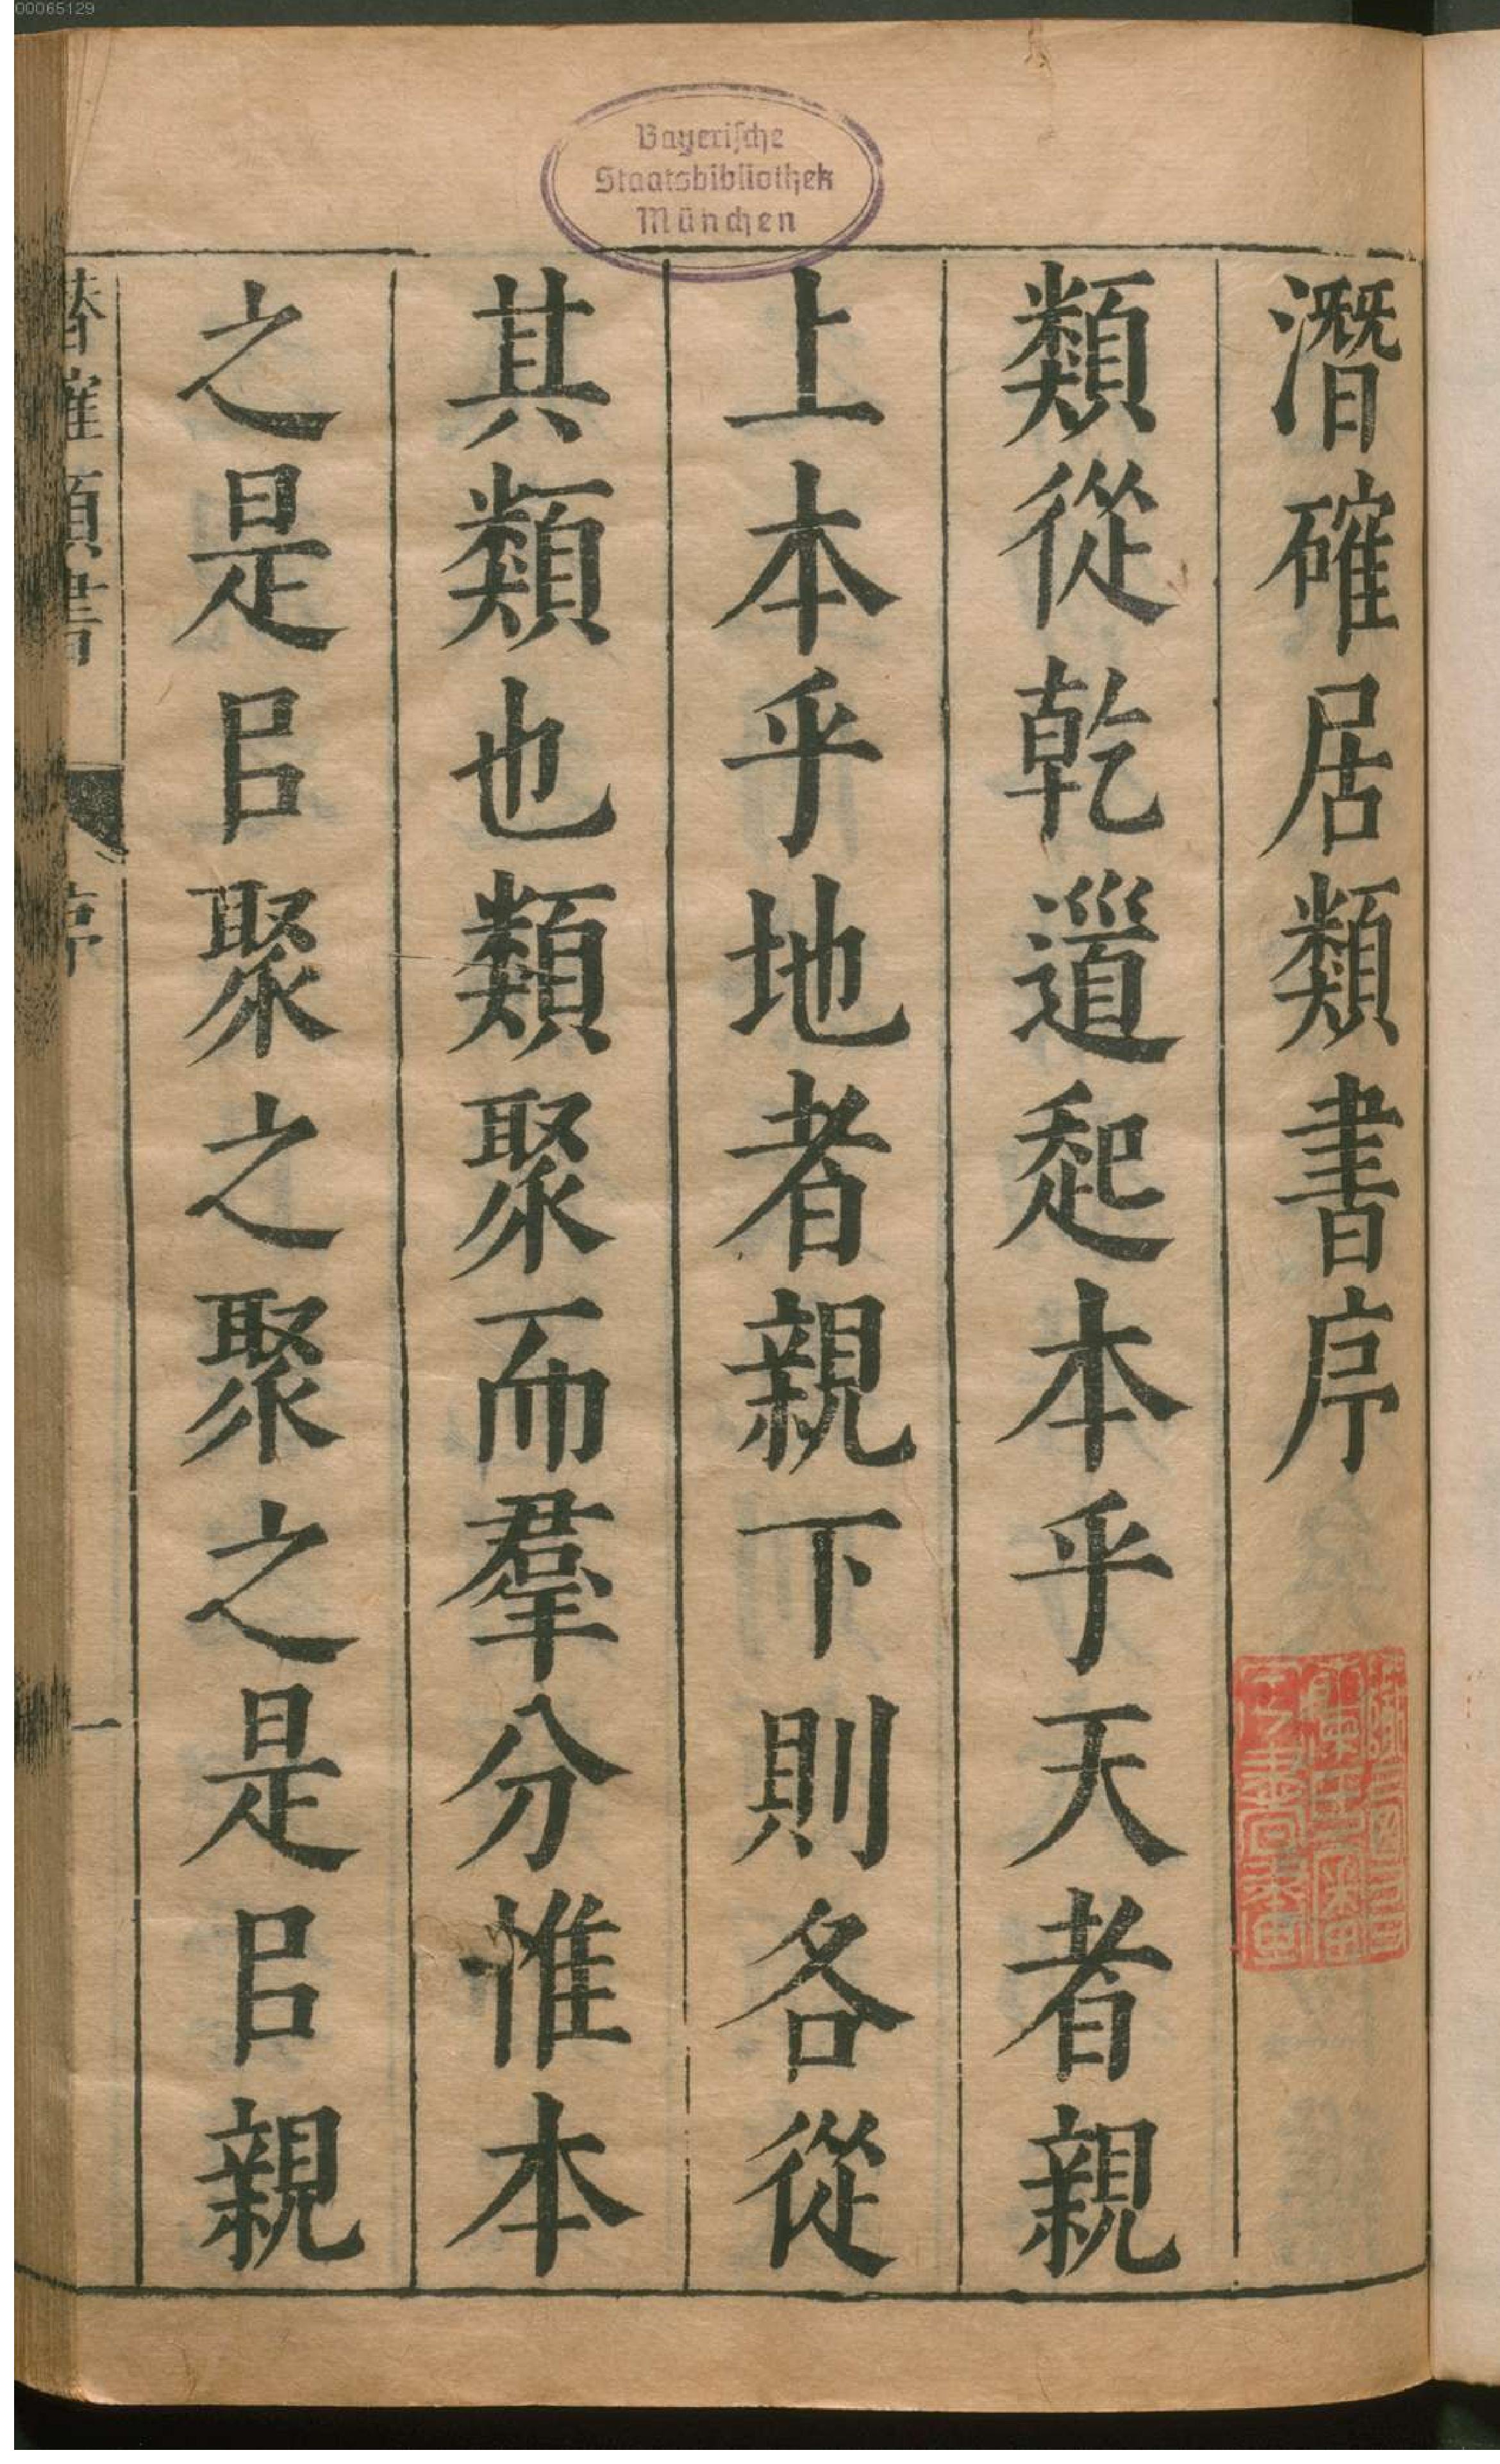 00065129
Bayerische
Staatsbibliothek
München
潛確居類書序
類從乾道起本乎天者親
上本乎地者親下則各從
其類也類聚而羣分惟本
之是㠯聚之聚之是㠯親
潛確類書
序
一